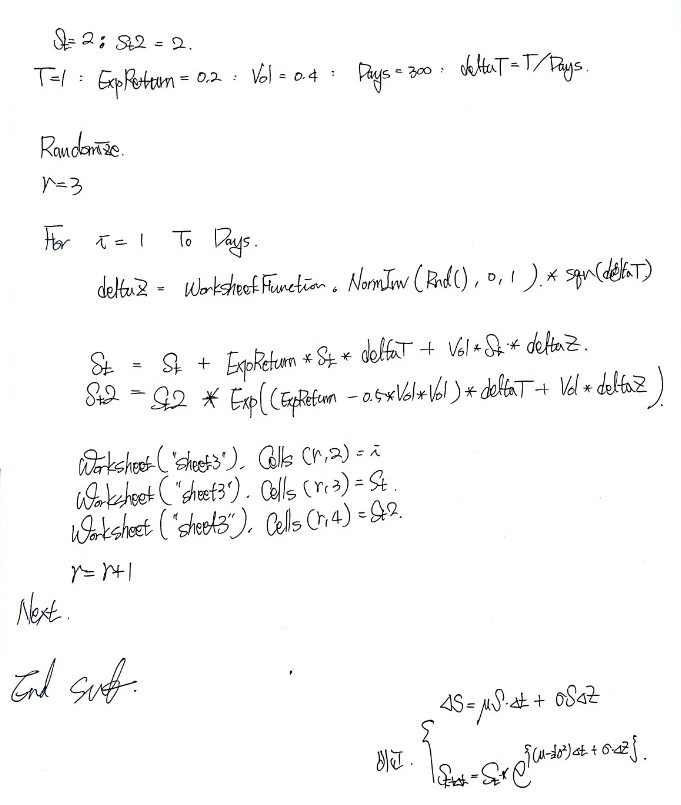 St = 2 : St2 = 2.
T=1 : ExpReturn = 0.2 : Vol = 0.4 : Days = 300 : deltaT = T/Days.
Randomize.
r=3
For i = 1 To Days.
deltaZ = WorksheetFunction. NormInv (Rnd(), 0, 1) * sqr(deltaT)
St = St + ExpReturn * St * deltaT + Vol * St * deltaZ.
St2 = St2 * Exp((ExpReturn - 0.5*Vol*Vol) * deltaT + Vol * deltaZ)
Worksheet ("sheet3"). Cells (r,2) = i
Worksheet ("sheet3"). Cells (r,3) = St.
Worksheet ("sheet3"). Cells (r,4) = St2.
r = r+1
Next.
End sub.
ΔS = μS·Δt + σSΔZ
비교.
St+Δt = St * e^{(μ-½σ²)Δt + σ·ΔZ}.